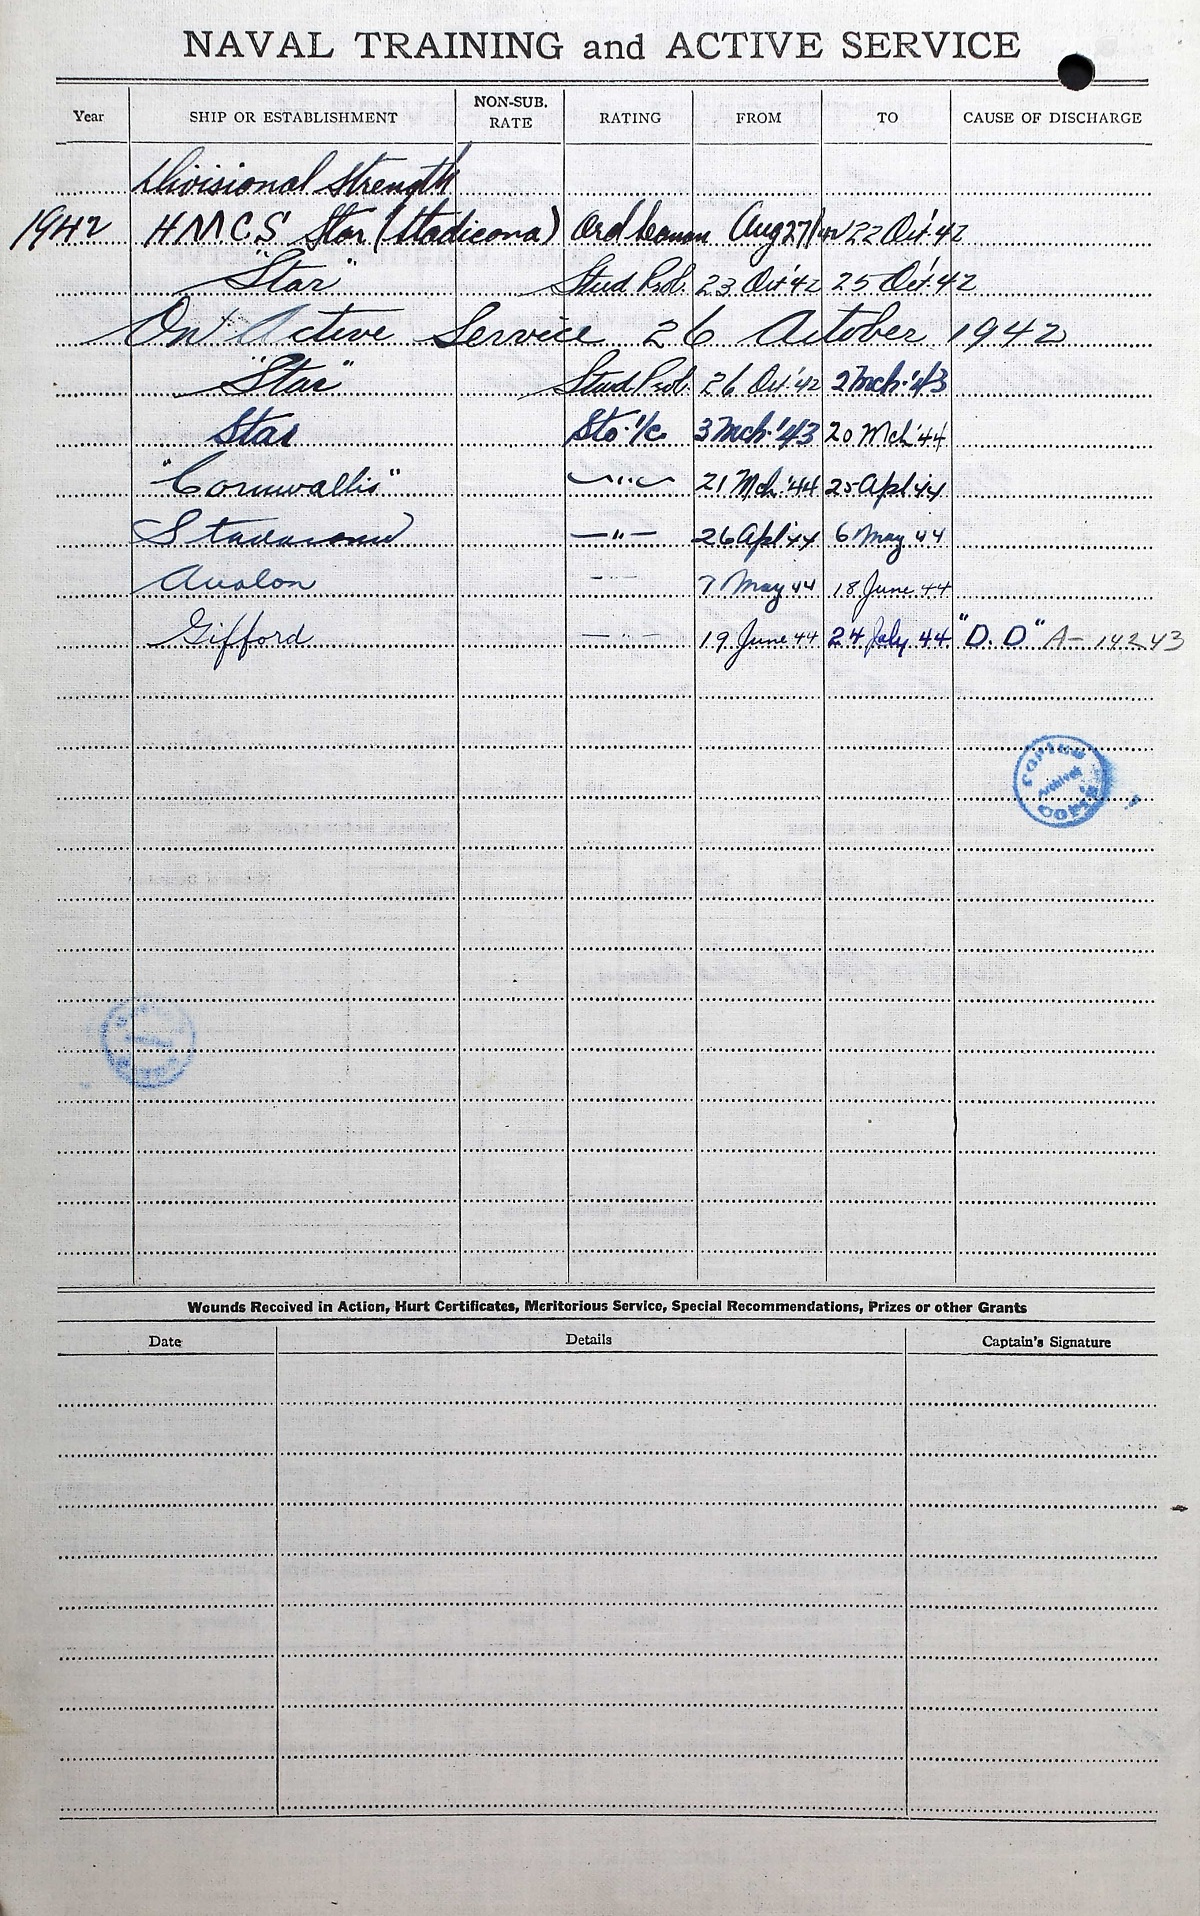 NAVAL TRAINING and ACTIVE SERVICE
Year SHIP OR ESTABLISHMENT NON-SUB. RATE RATING FROM TO CAUSE OF DISCHARGE
Divisional Strength
1942 HMCS Star (Stadicona) Ord Seaman Aug 27/42 22 Oct. '42
"Star" Stud. Prob. 23 Oct '42 25 Oct. '42
On Active Service 26 October 1942
"Star" Stud. Prob. 26 Oct. '42 2 Mch. '43
Star Sto. 1/c 3 Mch. '43 20 Mch '44
"Cornwallis" — " — 21 Mch '44 25 Apl 44
Stadacona — " — 26 Apl 44 6 May 44
Avalon — " — 7 May 44 18 June 44
Gifford — " — 19 June 44 24 July 44 "D.D" A- 14243
COPIED
Archives
COPIE
Wounds Received in Action, Hurt Certificates, Meritorious Service, Special Recommendations, Prizes or other Grants
Date Details Captain's Signature